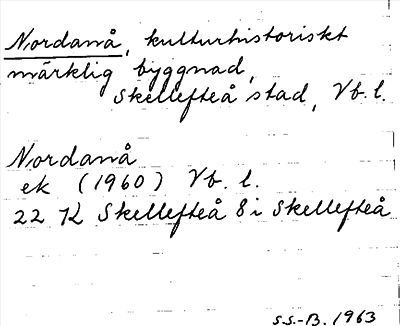 Nordanå, kulturhistoriskt
märklig byggnad,
Skellefteå stad, Vb. l.
Nordanå
ek (1960) Vb. l.
22 K Skellefteå 8i Skellefteå
S.S.-B. 1963